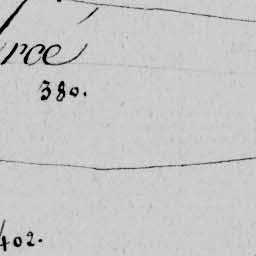 rcé
380.
402.